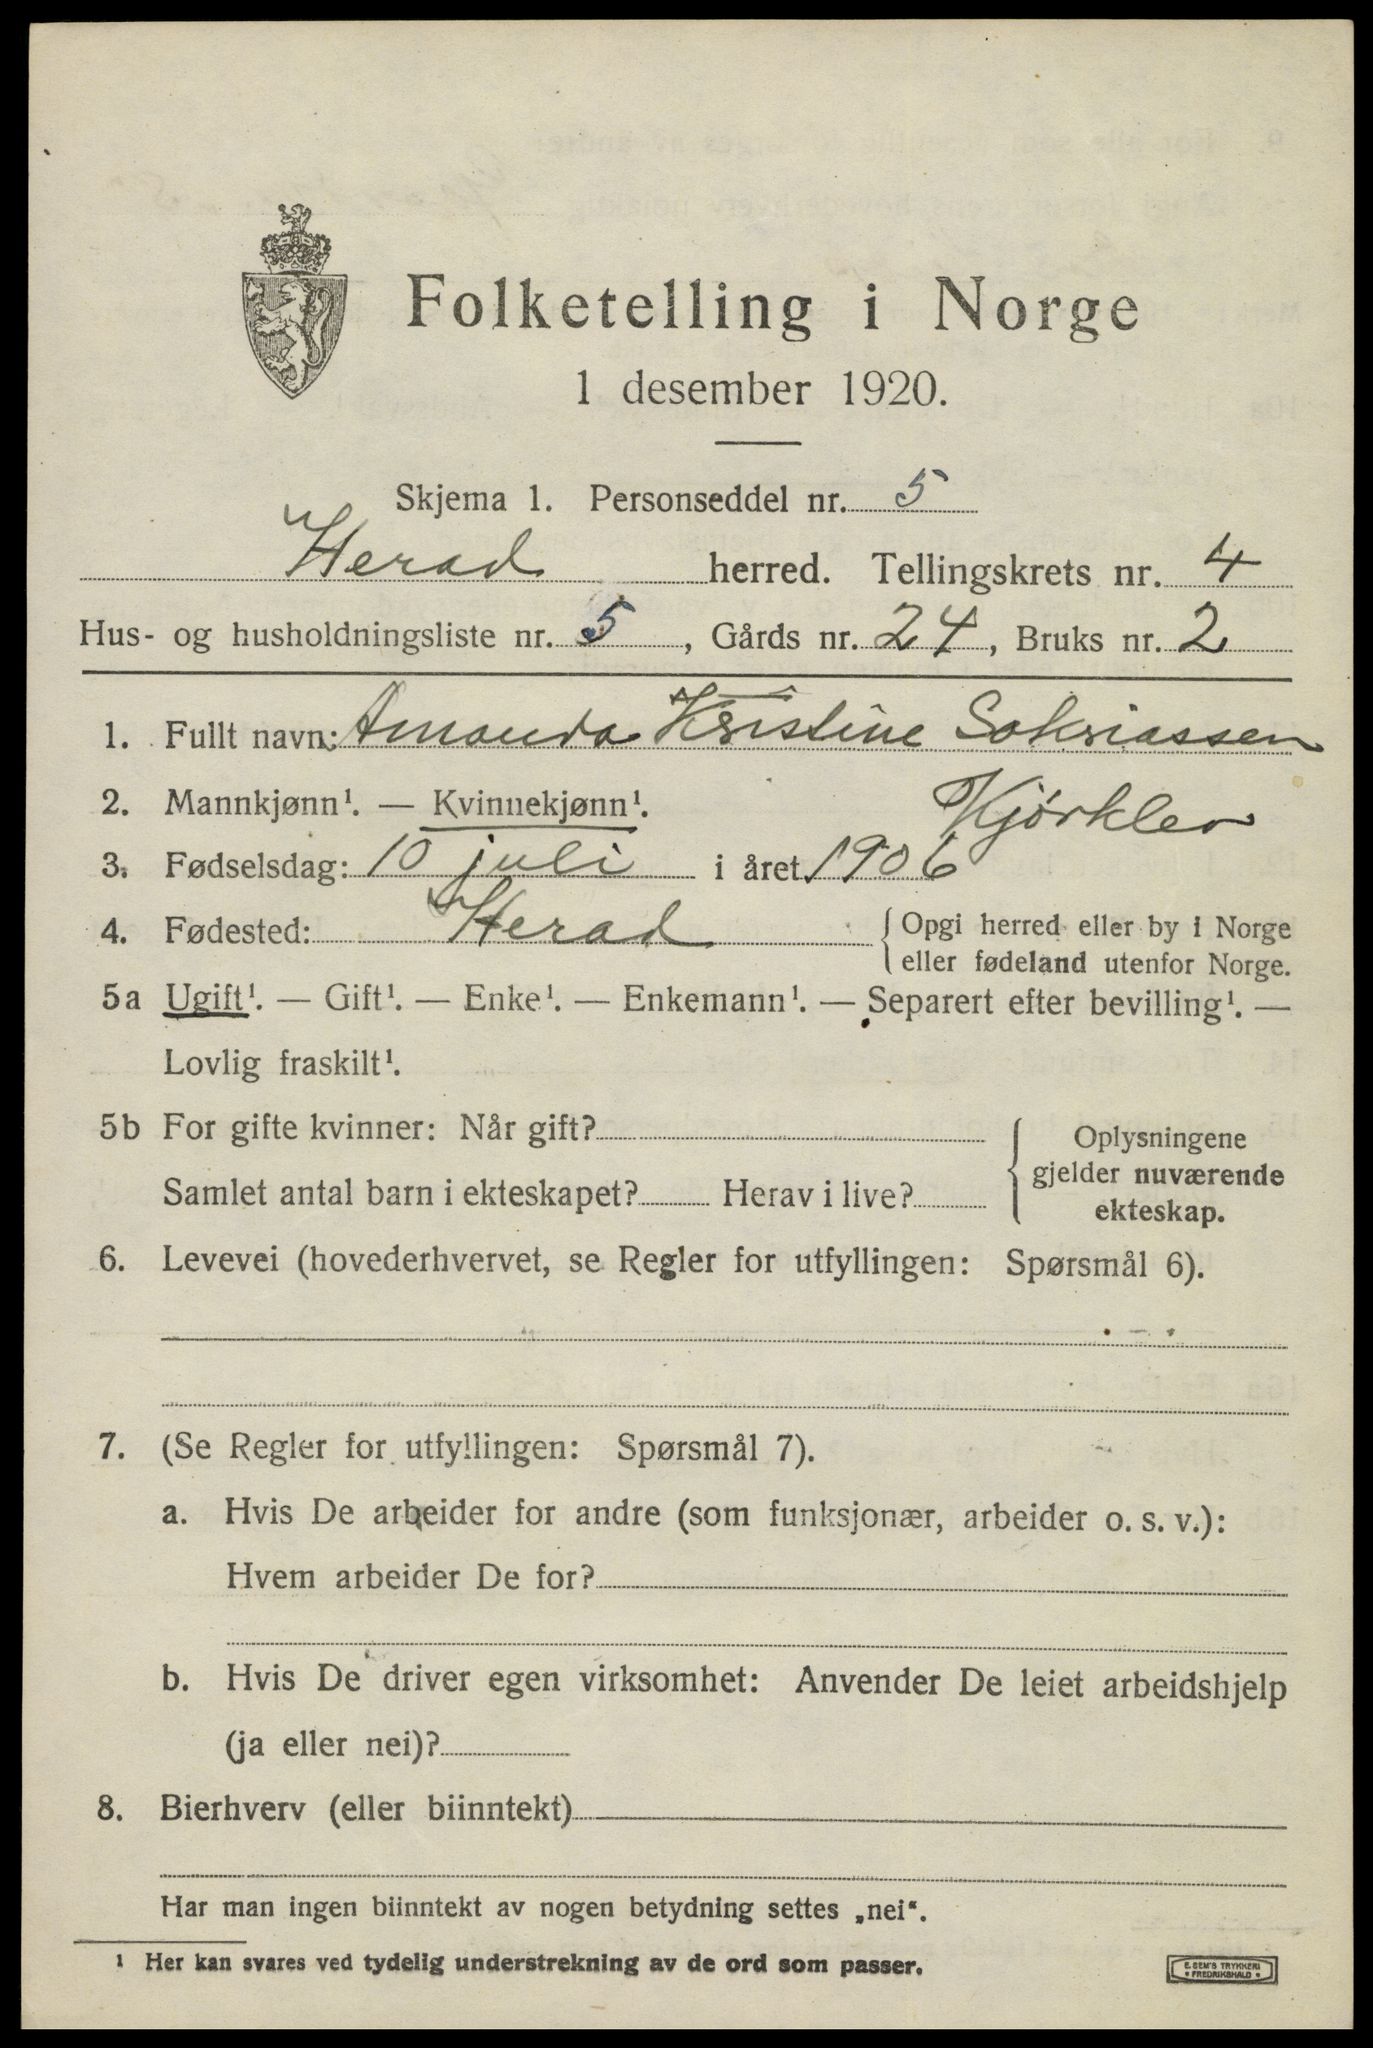 Folketelling i Norge
1 desember 1920.
Skjema 1. Personseddel nr. 5
Herad herred. Tellingskrets nr. 4
Hus- og husholdningsliste nr. 5, Gårds nr. 24, Bruks nr. 2
1. Fullt navn: Amanda Kristine Sakriassen
Kjørklev
2. Mannkjønn¹. — Kvinnekjønn¹.
3. Fødselsdag: 10 juli i året 1906
4. Fødested: Herad { Opgi herred eller by i Norge
eller fødeland utenfor Norge.
5a Ugift¹. — Gift¹. — Enke¹. — Enkemann¹. — Separert efter bevilling¹. —
Lovlig fraskilt¹.
5b For gifte kvinner: Når gift?
Samlet antal barn i ekteskapet? Herav i live?
Oplysningene
gjelder nuværende
ekteskap.
6. Levevei (hovederhvervet, se Regler for utfyllingen: Spørsmål 6).
7. (Se Regler for utfyllingen: Spørsmål 7).
a. Hvis De arbeider for andre (som funksjonær, arbeider o. s. v.):
Hvem arbeider De for?
b. Hvis De driver egen virksomhet: Anvender De leiet arbeidshjelp
(ja eller nei)?
8. Bierhverv (eller biinntekt)
Har man ingen biinntekt av nogen betydning settes „nei“.
¹ Her kan svares ved tydelig understrekning av de ord som passer.
E. SEM'S TRYKKERI
• FREDRIKSHALD •